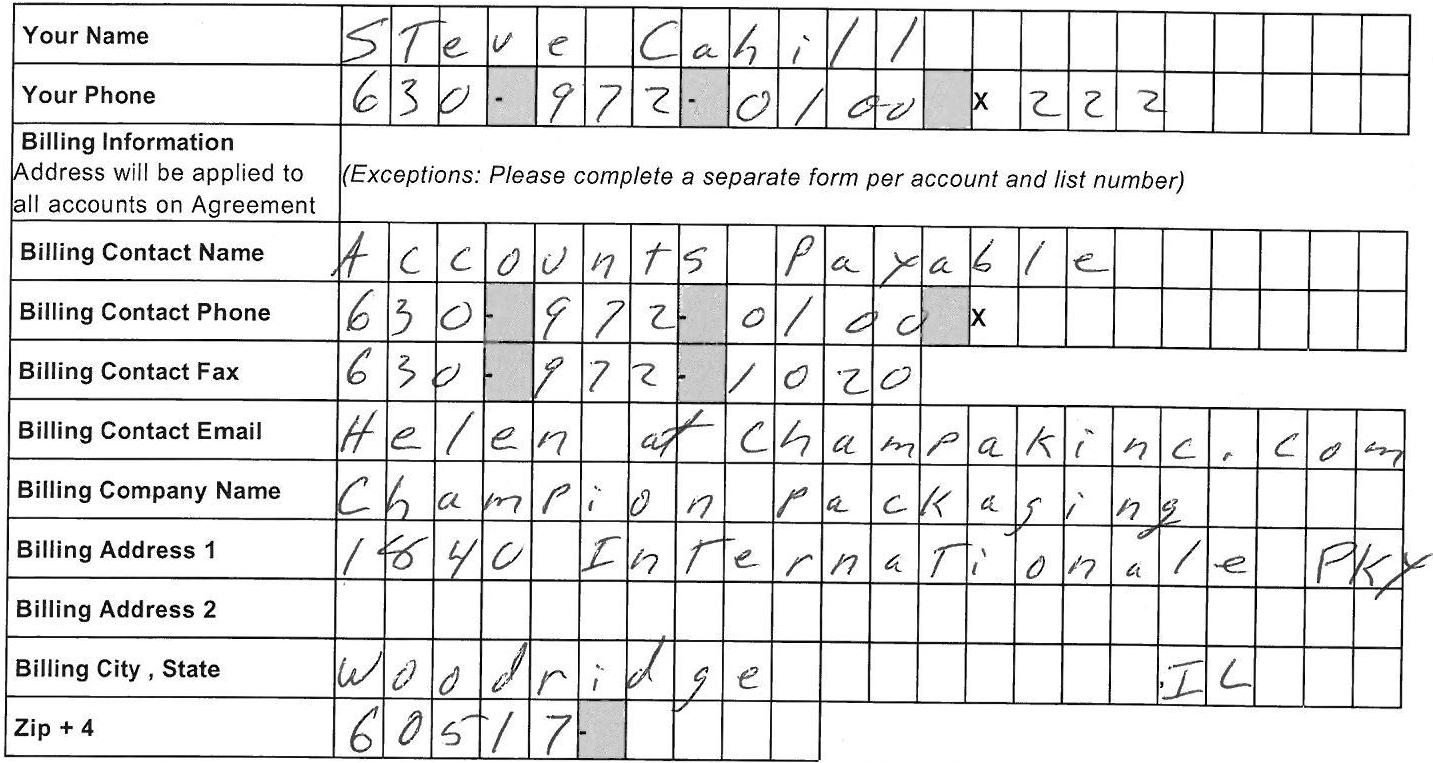 Your Name STeve Cahill
Your Phone 630-972-0100 x 222
Billing Information
Address will be applied to
all accounts on Agreement
(Exceptions: Please complete a separate form per account and list number)
Billing Contact Name Accounts Payable
Billing Contact Phone 630-972-0100 x
Billing Contact Fax 630-972-1020
Billing Contact Email Helen at Champakinc.com
Billing Company Name Champion Packaging
Billing Address 1 1840 InTernaTionale PKY
Billing Address 2
Billing City , State Woodridge , IL
Zip + 4 60517-